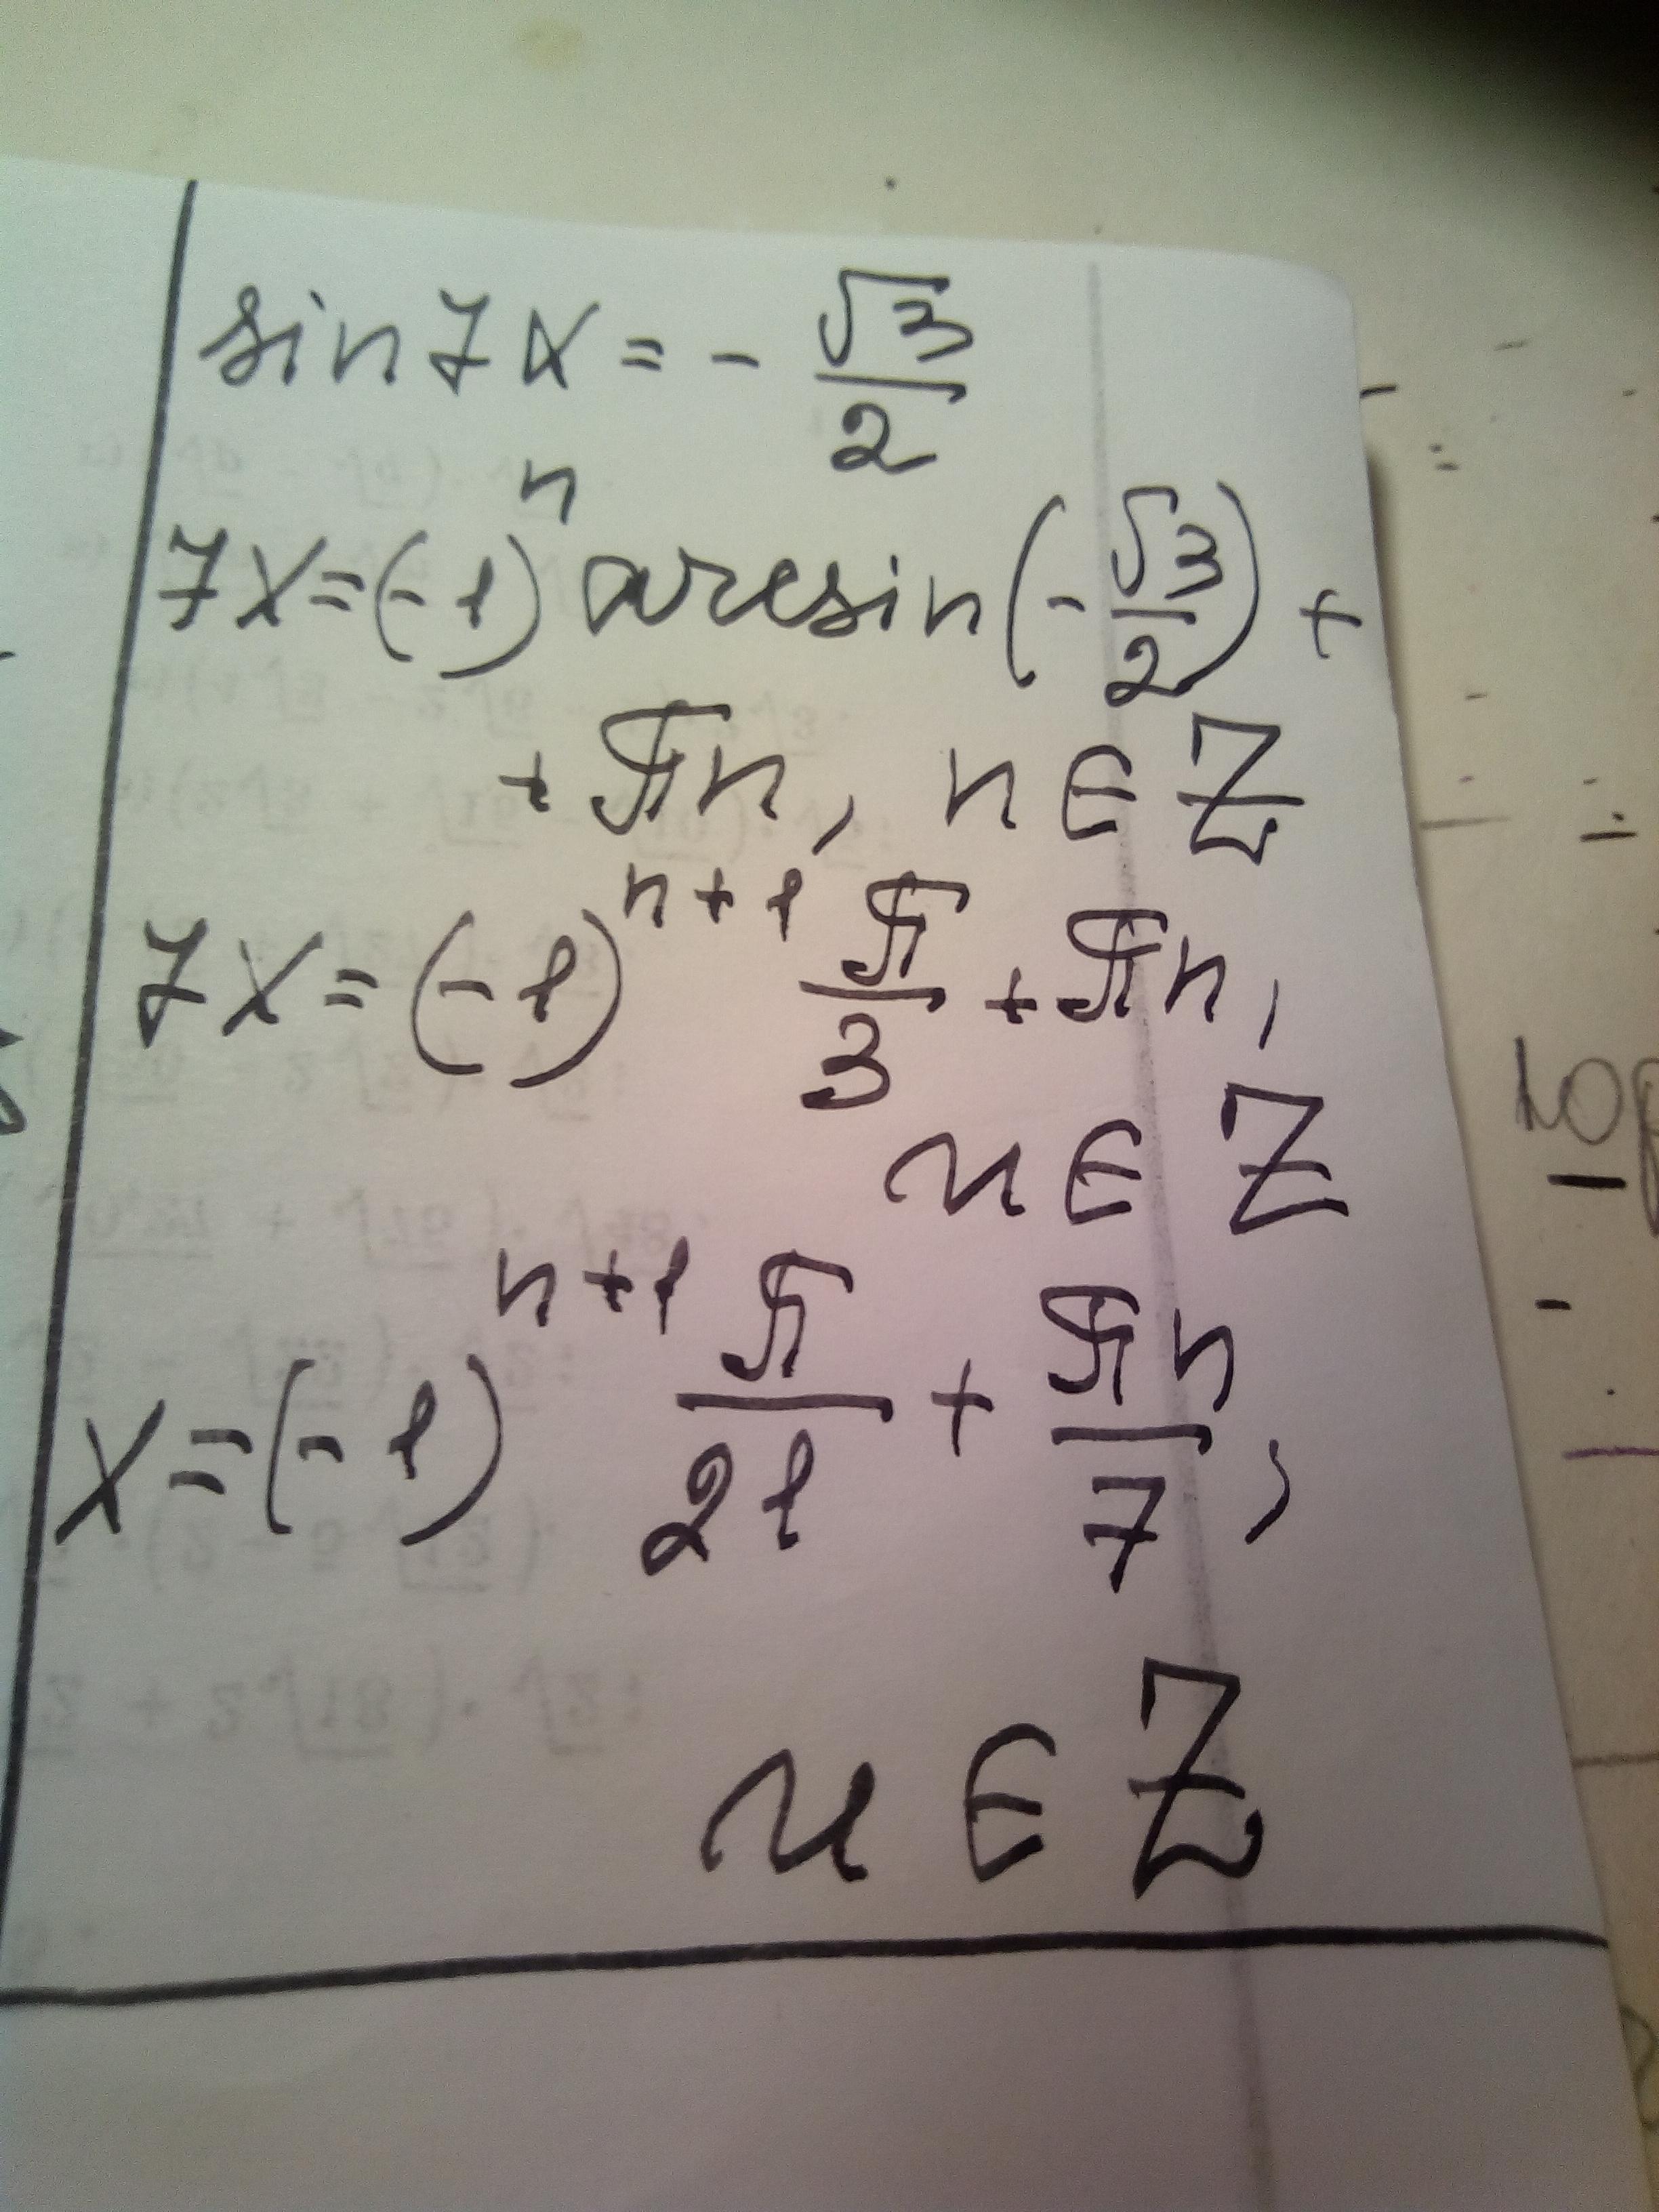 sin7x = - √3/2
7x = (-1)^n arcsin(-√3/2) +
+ πn, n ∈ Z
7x = (-1)^(n+1) π/3 + πn,
n ∈ Z
x = (-1)^(n+1) π/21 + πn/7,
n ∈ Z